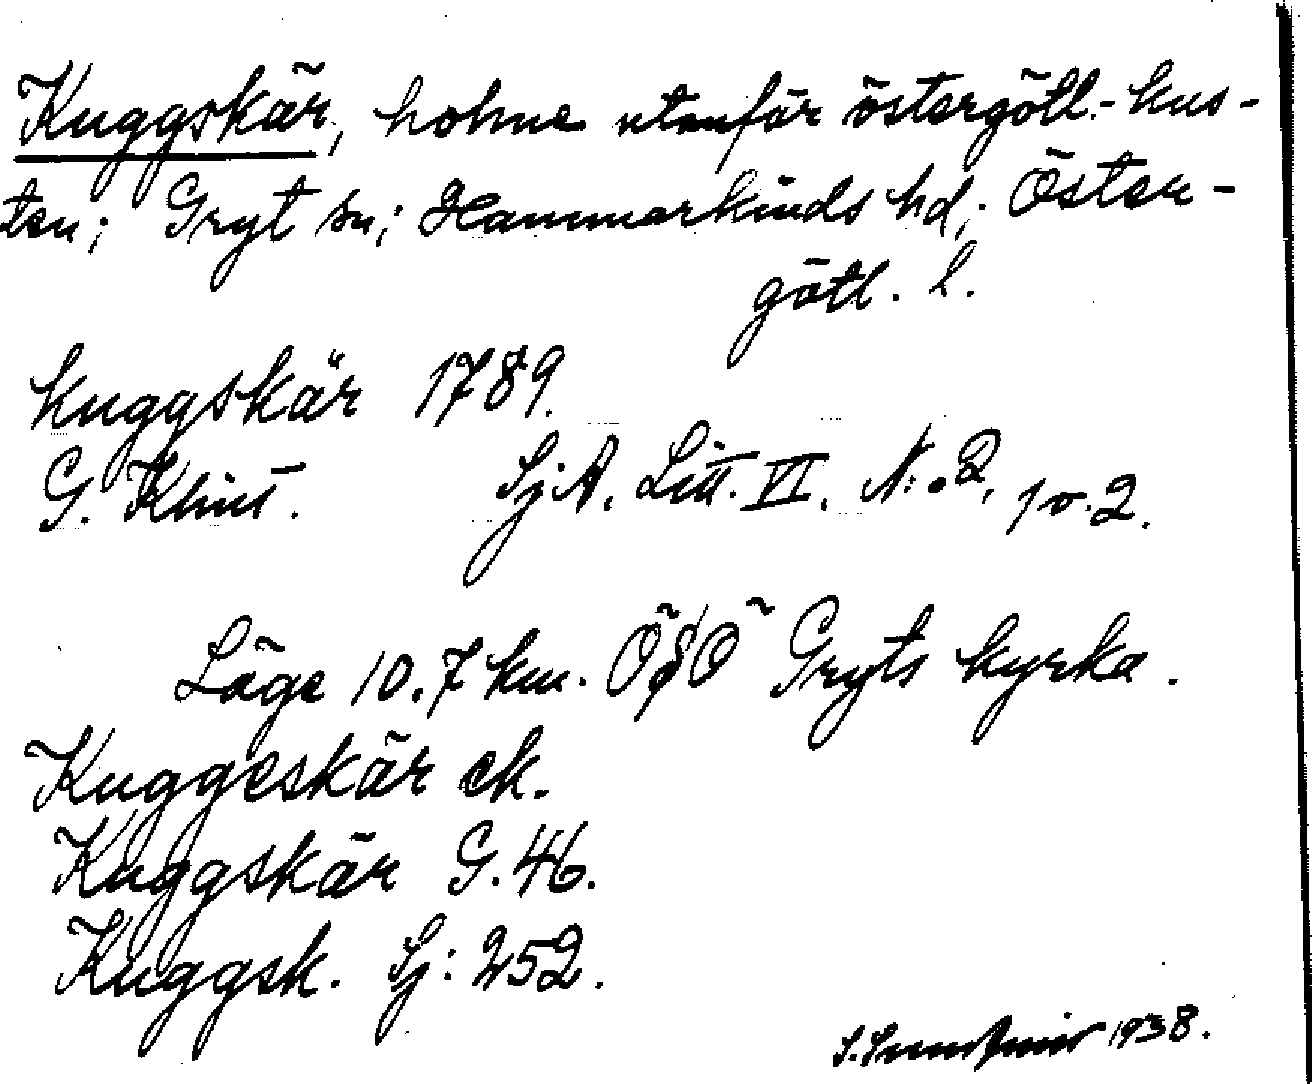 Kuggskär, holme utanför östergötl.-kus-
ten; Gryt sn; Hammarkinds hd; Öster-
götl. l.
kuggskär 1789.
G. Klint. Sj.A. Litt. VI. N:o 2, 1 o. 2.
Läge 10.7 km. OSO Gryts kyrka.
Kuggeskär ek.
Kuggskär G. 46.
Kuggsk. Sj: 252.
1938.